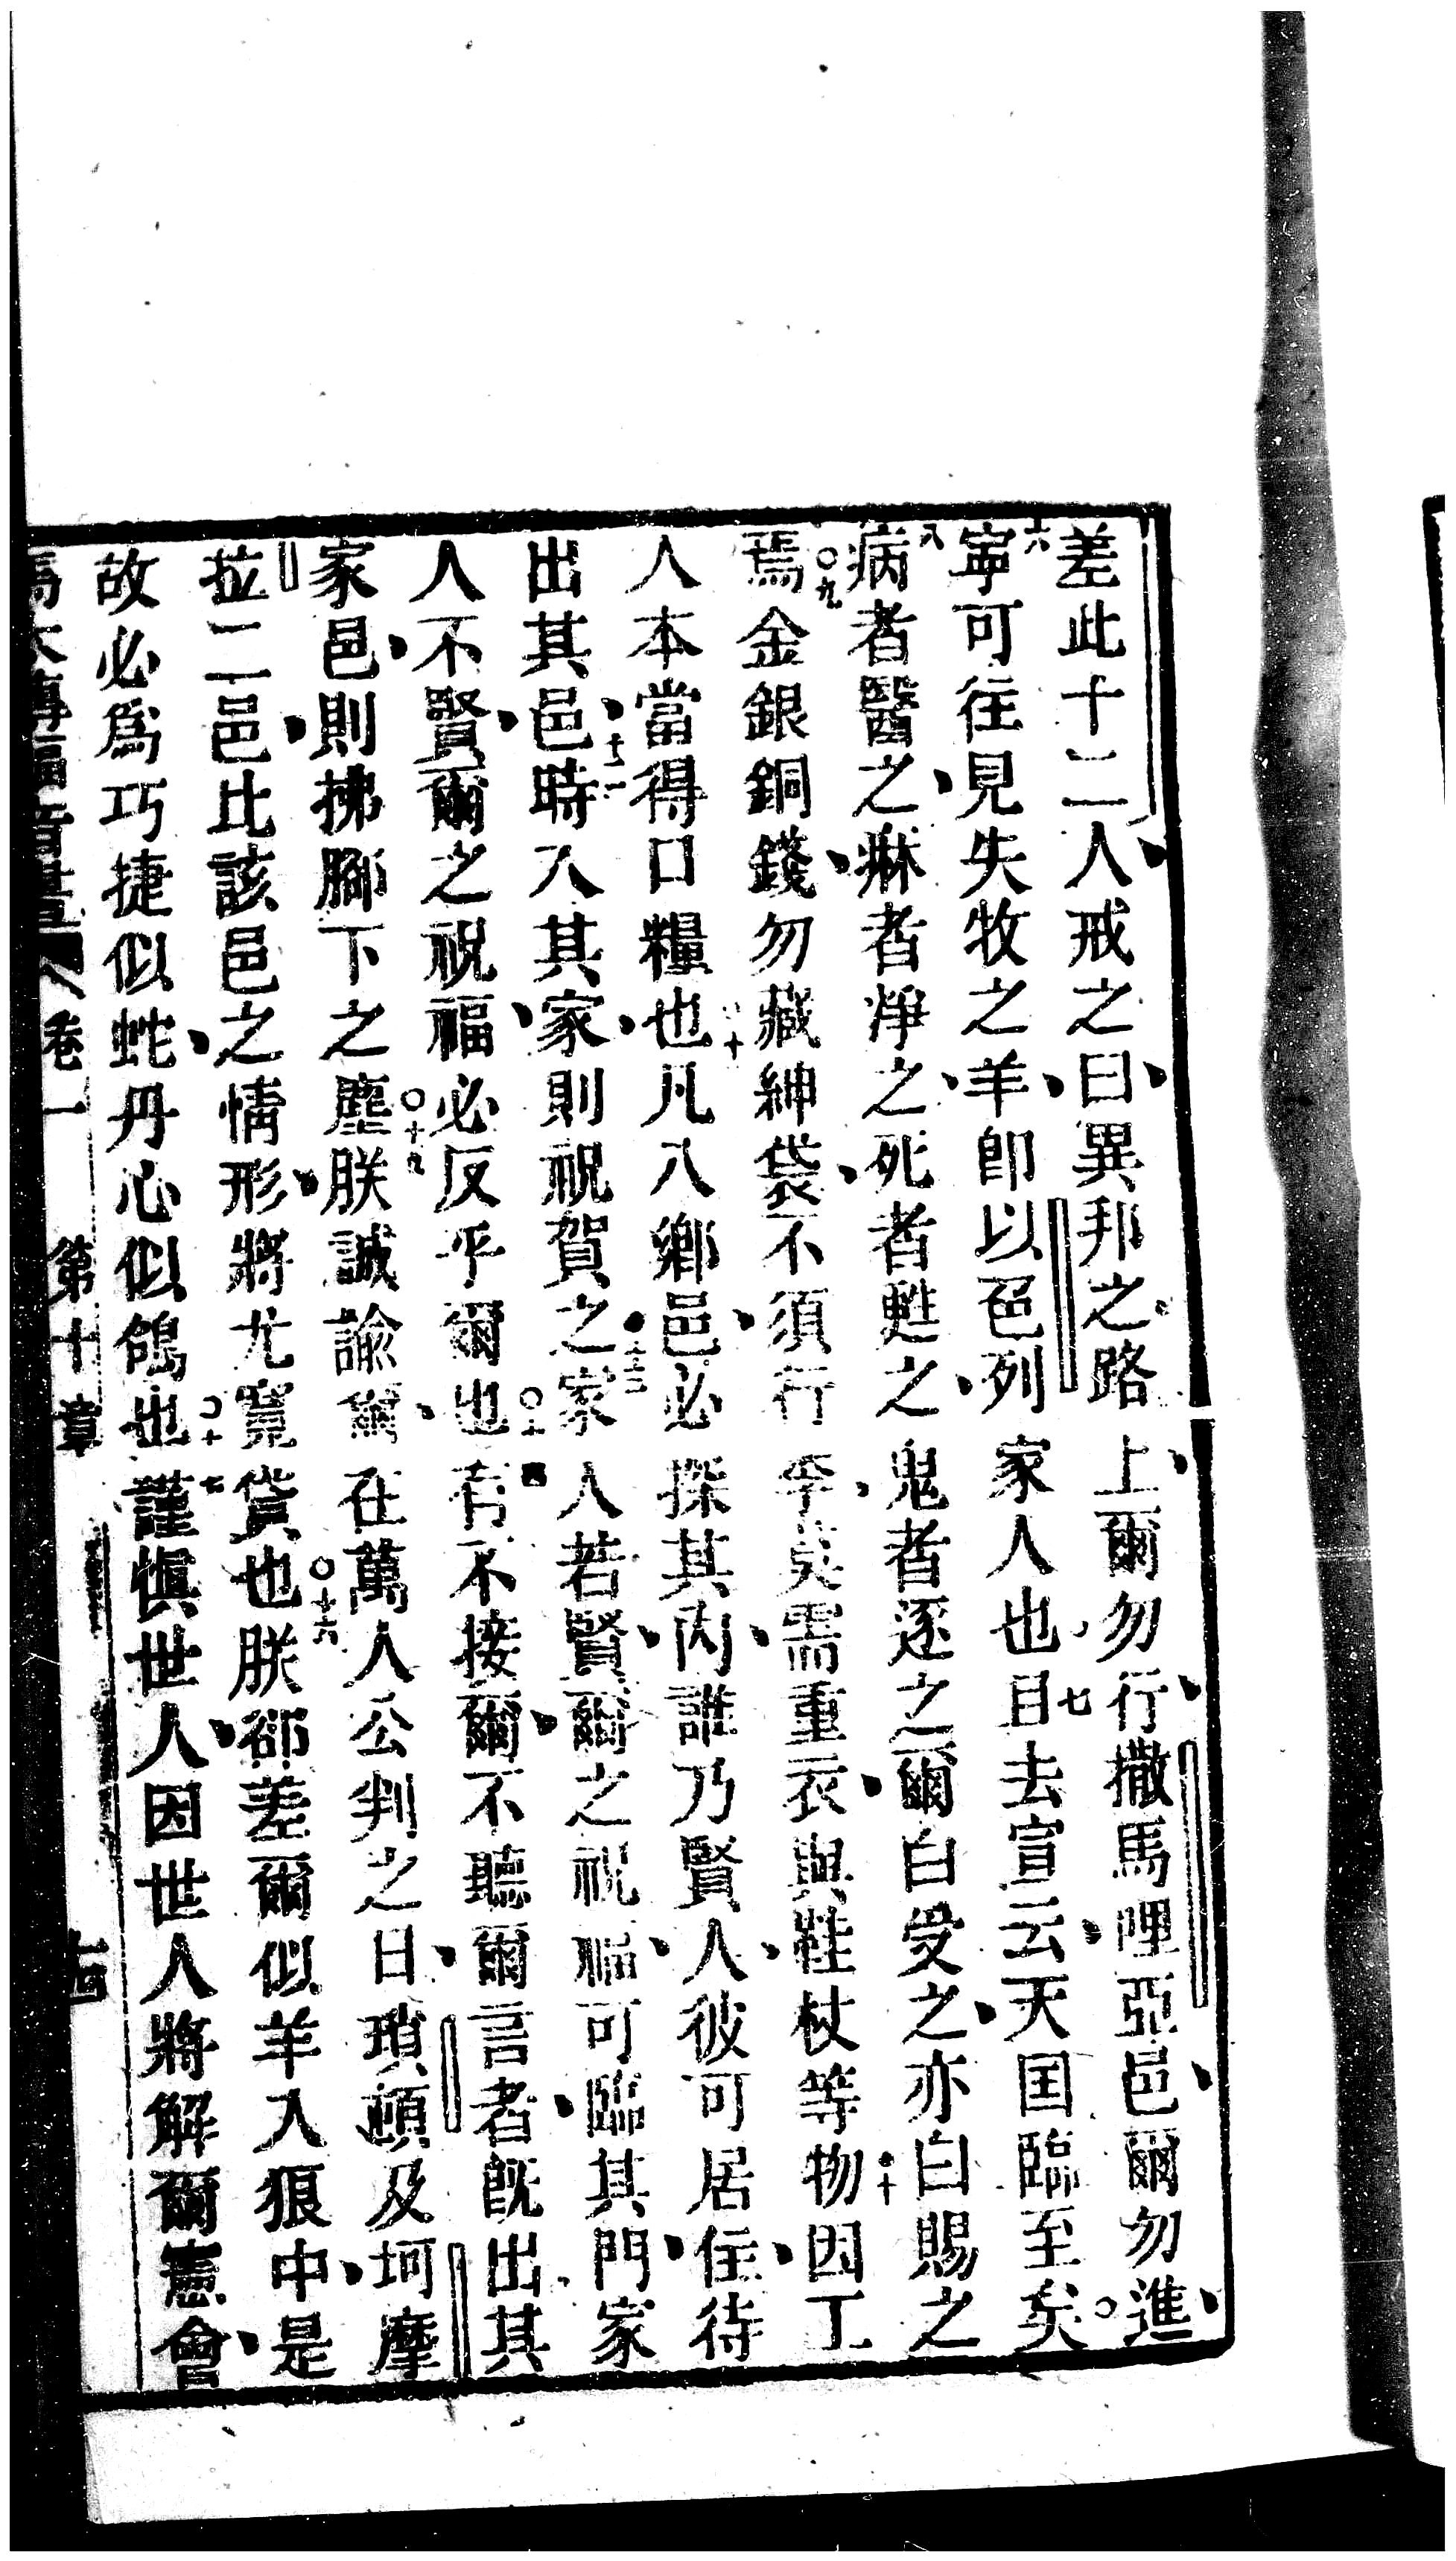 差此十二人戒之曰異邦之路上爾勿行撒馬哩亞邑爾勿進
六寧可往見失牧之羊卽以色列家人也七且去宣云天国臨至矣○
八病者醫之痳者淨之死者甦之鬼者逐之爾白受之亦白賜之
焉○九金銀銅錢勿藏紳袋十不須行李矣需重衣與鞋杖等物因工
人本當得口糧也十一凡入鄉邑必探其內誰乃賢人彼可居住待
出其邑時十二入其家則祝賀之家十三人若賢爾之祝福可臨其門家
人不賢爾之祝福必反乎爾也○十四有不接爾不聽爾言者旣出其
家邑則拂腳下之塵○十五朕誠諭爾在萬人公判之日瑣頓及坷摩
拉二邑比該邑之情形將尤寬貸也○十六朕卻差爾似羊入狼中是
故必爲巧捷似蛇丹心似鴿也○十七謹愼世人因世人將解爾憲會
馬太傳福音書 卷一 第十章 十四